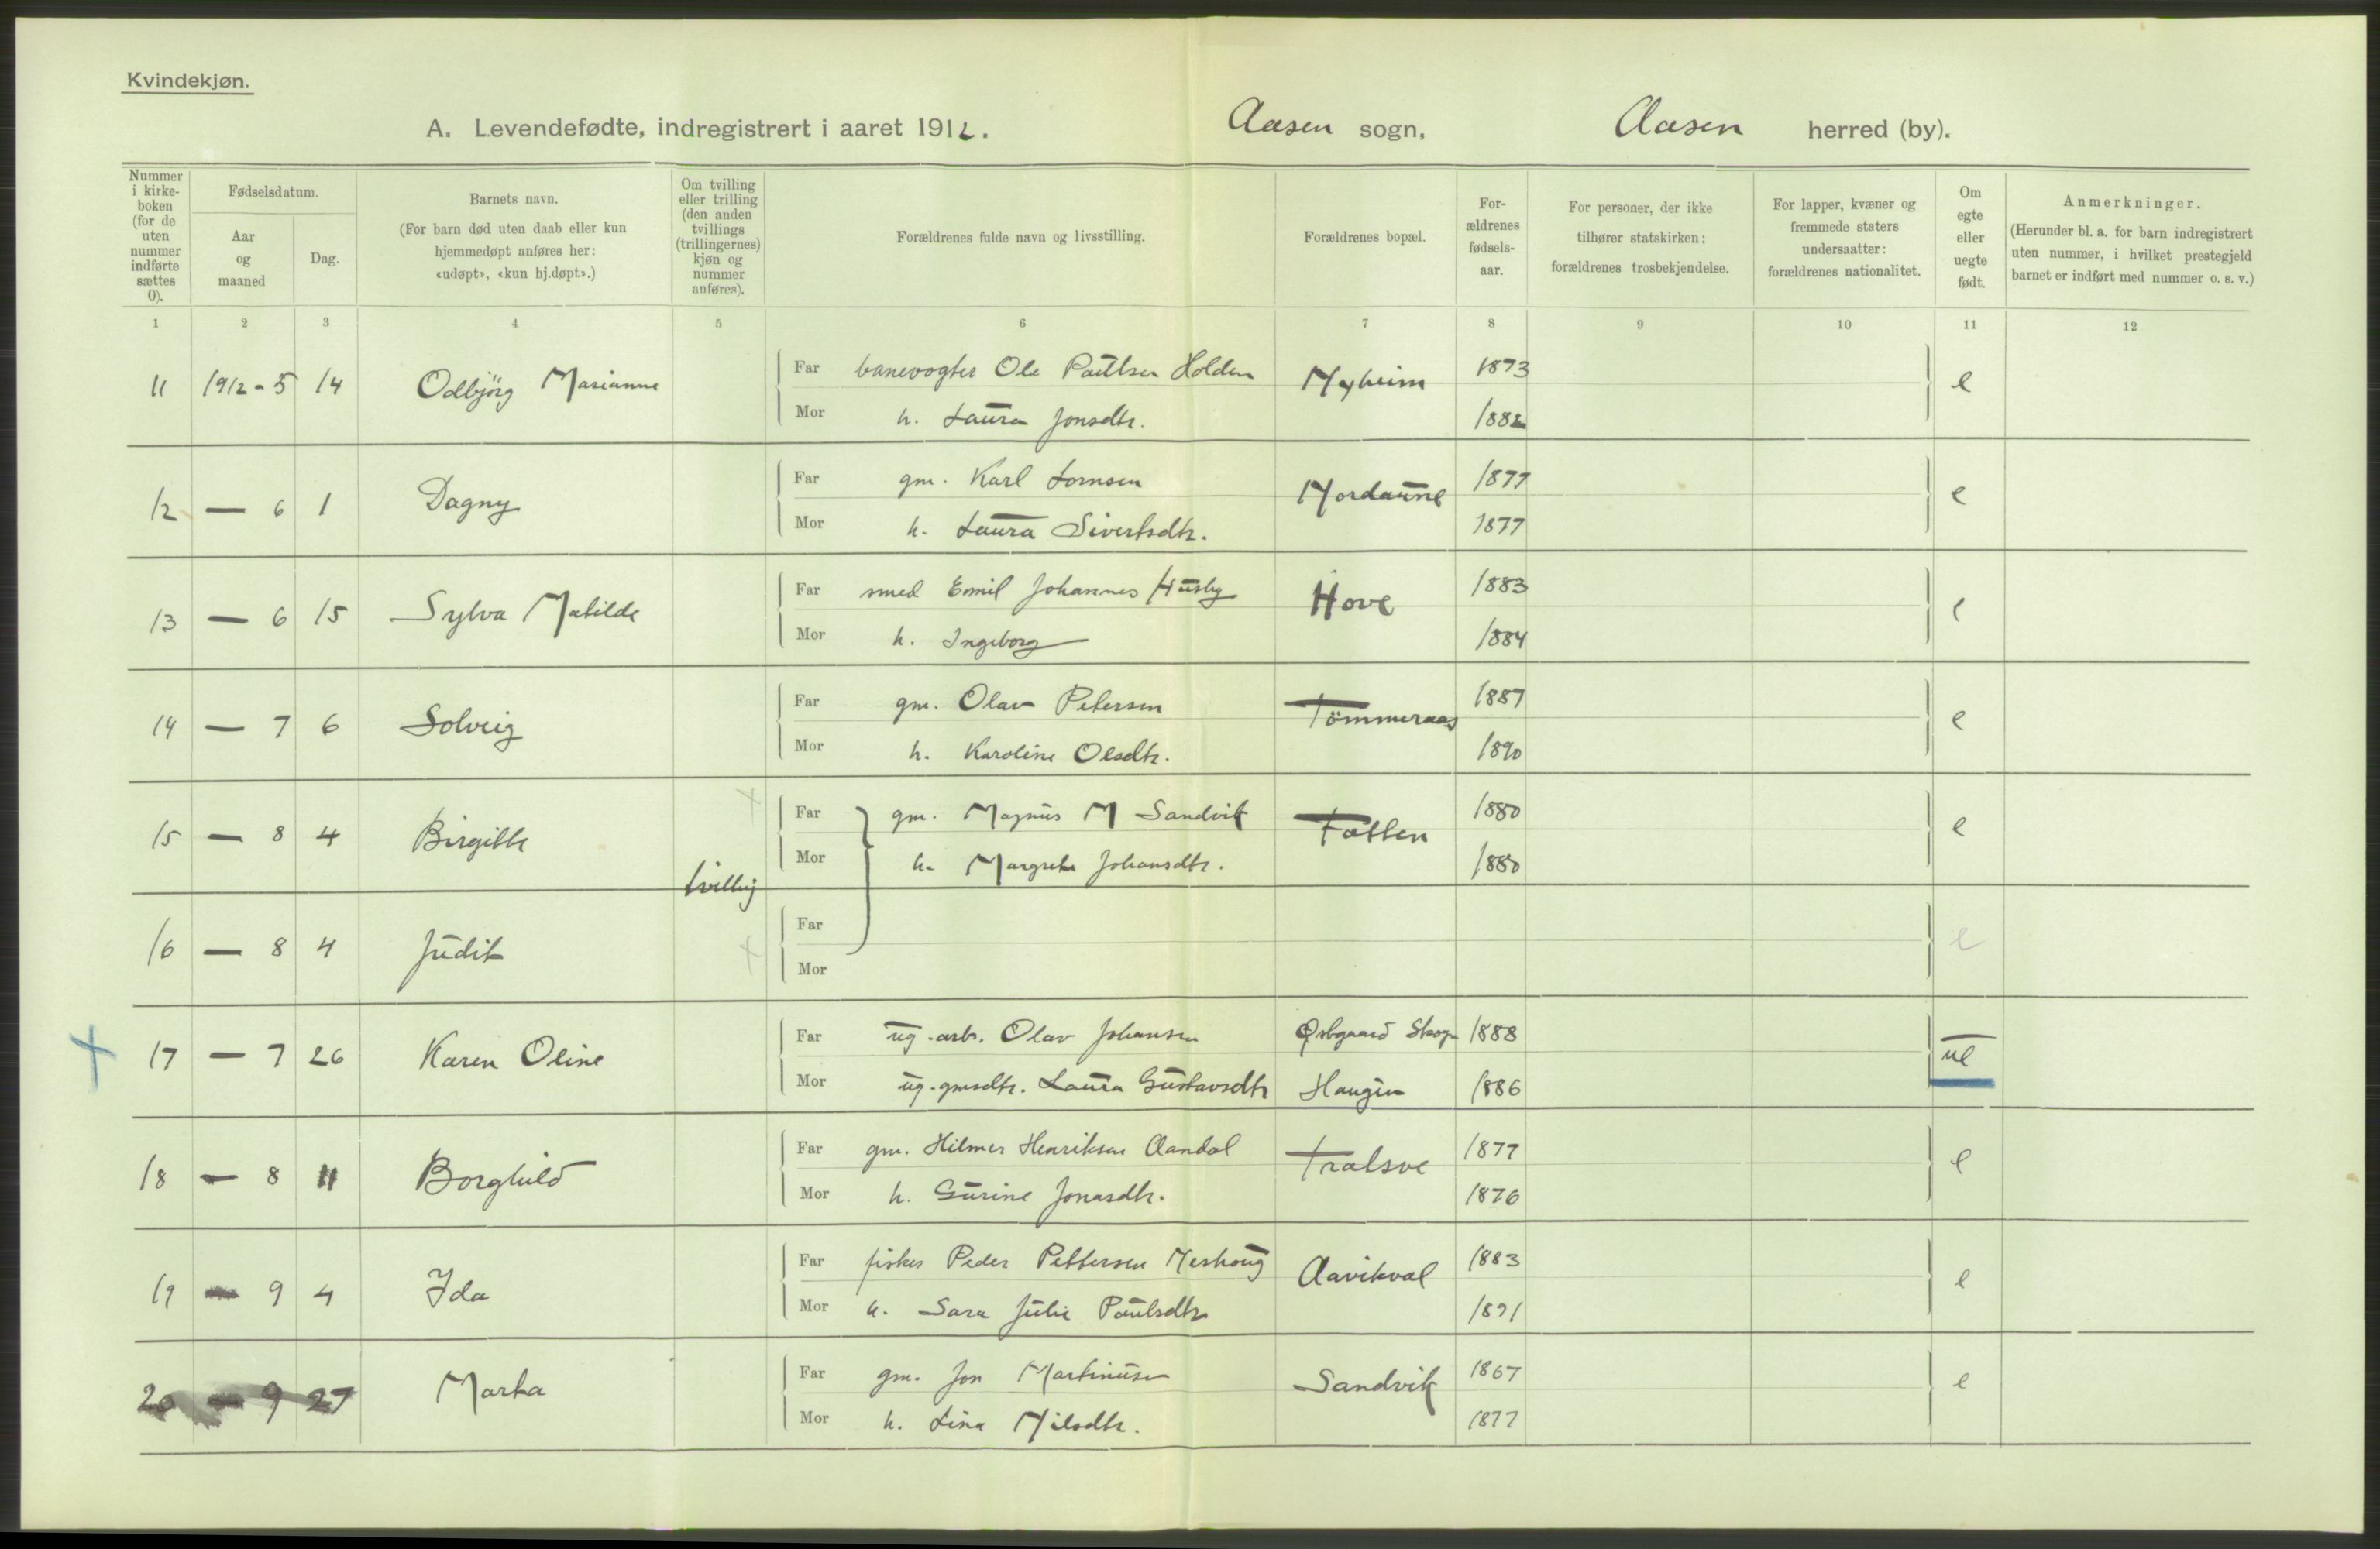 Kvindekjøn.
A. Levendefødte, indregistrert i aaret 1912. Aasen sogn, Aasen herred (by).
Nummer i kirke-boken (for de uten nummer indførte sættes 0).
Fødselsdatum.
Aar og maaned
Dag.
Barnets navn.
(For barn død uten daab eller kun hjemmedøpt anføres her: «udøpt», «kun hj.døpt».)
Om tvilling eller trilling (den anden tvillings (trillingernes) kjøn og nummer anføres).
Forældrenes fulde navn og livsstilling.
Forældrenes bopæl.
For-ældrenes fødsels-aar.
For personer, der ikke tilhører statskirken: forældrenes trosbekjendelse.
For lapper, kvæner og fremmede staters undersaatter: forældrenes nationalitet.
Om egte eller uegte født.
Anmerkninger.
(Herunder bl. a. for barn indregistrert uten nummer, i hvilket prestegjeld barnet er indført med nummer o. s. v.)
1 2 3 4 5 6 7 8 9 10 11 12
11 1912-5 14 Odbjörg Marianne Far banevogter Ole Paulsen Holden Nyheim 1873 e
Mor h. Laura Jonsdtr. 1882
12 — 6 1 Dagny Far gm. Karl Lornsen Nordaune 1877 e
Mor h. Laura Sivertsdtr. 1877
13 — 6 15 Sylva Matilde Far smed Emil Johannes Husby Hove 1883 e
Mor h. Ingeborg — 1884
14 — 7 6 Solveig Far gm. Olav Petersen Tömmeraas 1887 e
Mor h. Karoline Olsdtr. 1890
15 — 8 4 Birgitte Far gm. Magnus M Sandvik Fatten 1880 e
Mor h. Margrete Johansdtr. 1880
tvilling
16 — 8 4 Judit Far e
Mor
17 — 7 26 Karen Oline Far ug. arb. Olav Johansen Østgaard Skogn 1888 ue
Mor ug. gmsdtr. Laura Gustavsdtr Haugen 1886
18 — 8 11 Borghild Far gm. Hilmer Henriksen Aandal Tralsve 1877 e
Mor h. Gurine Jonasdtr. 1876
19 — 9 4 Ida Far fisker Peder Pettersen Neshaug Aavikval 1883 e
Mor h. Sara Julie Paulsdtr 1891
20 — 9 27 Marta Far gm. Jon Martinusen Sandvik 1867 e
Mor h. Lina Nilsdtr. 1877